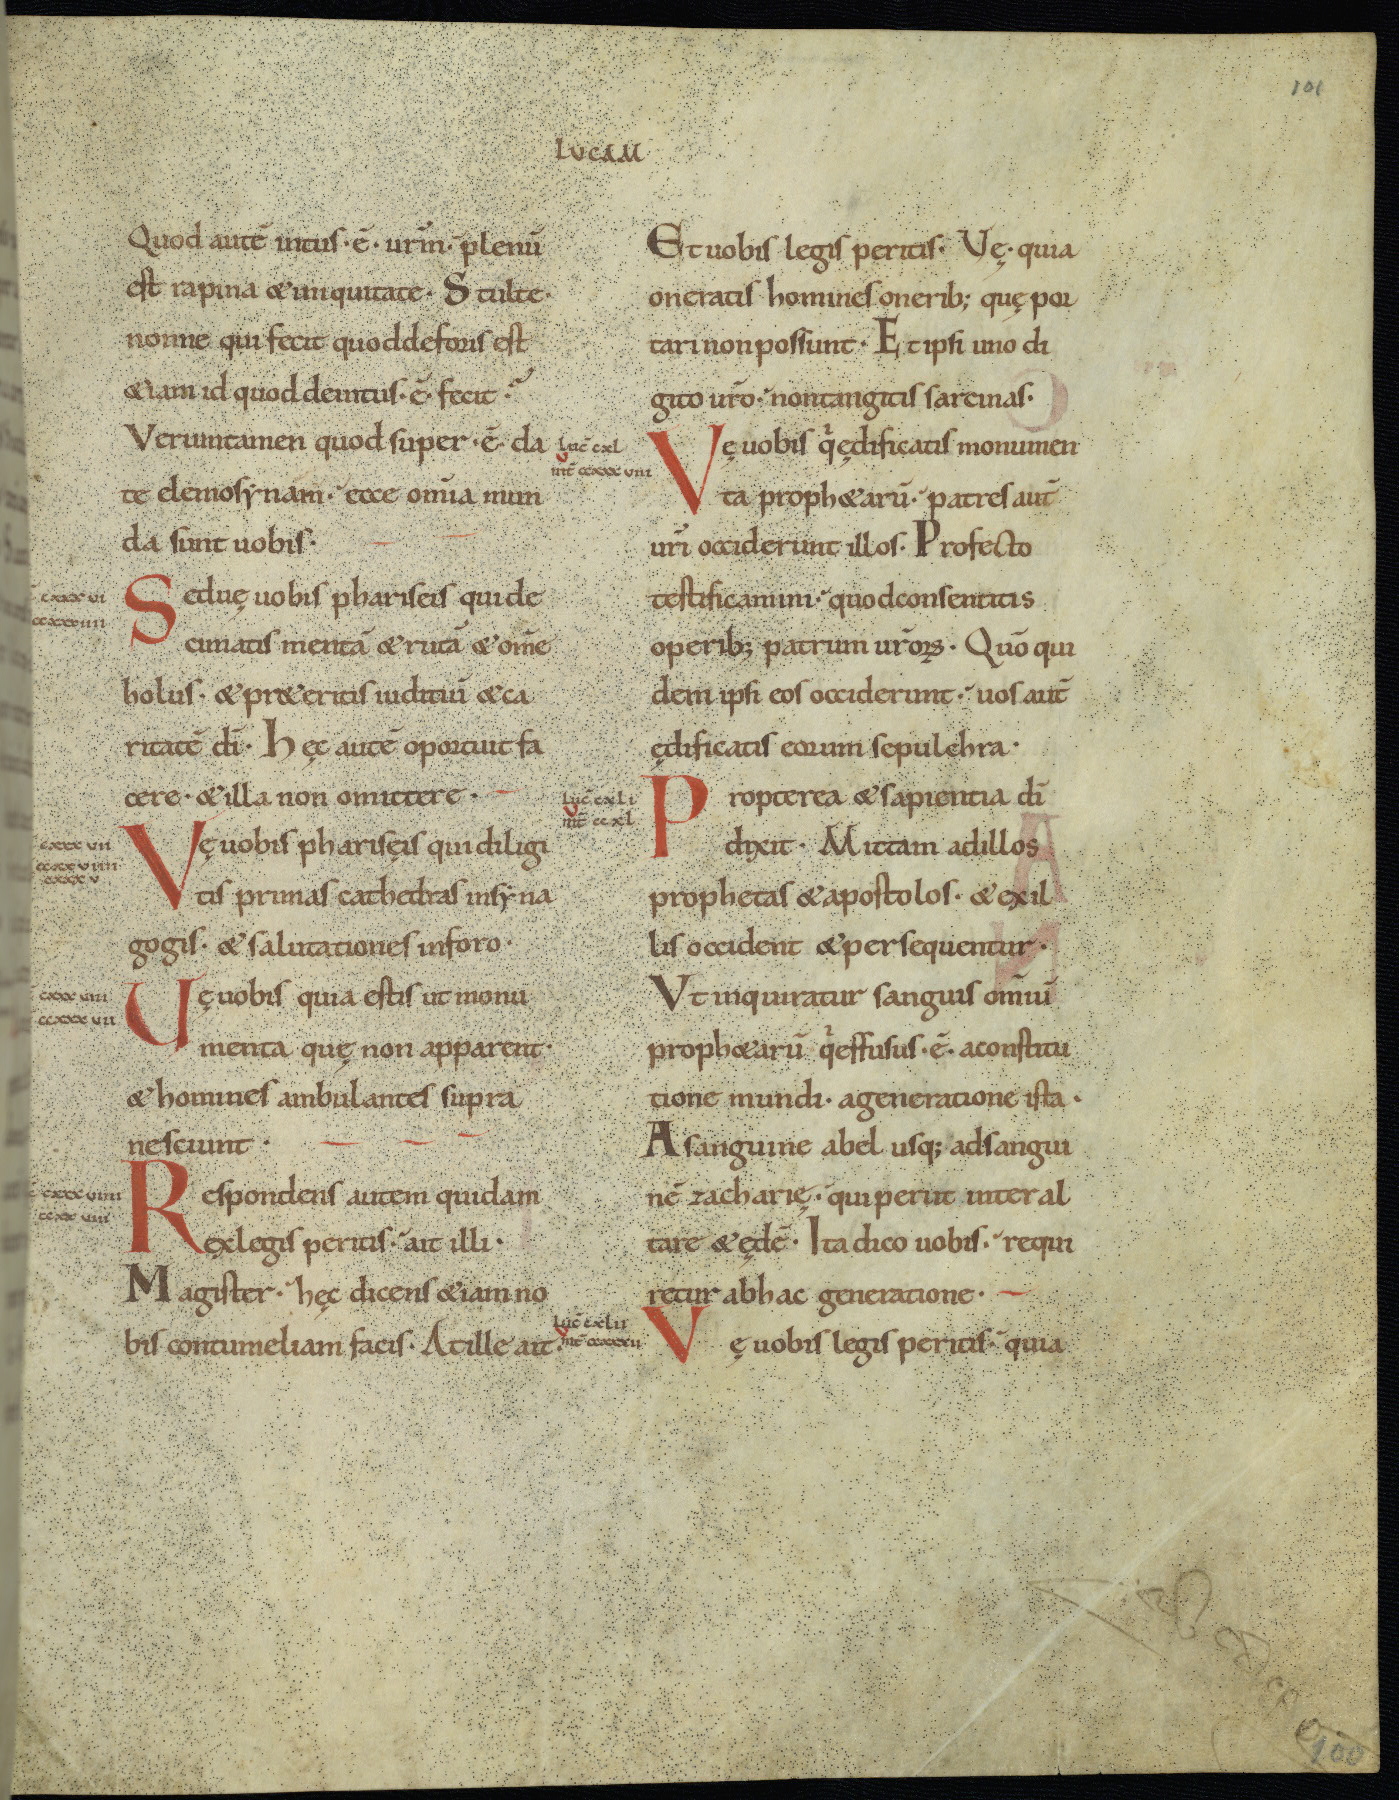 101
LUCAM
Quod autē intus·ē·urm̄·plenū
est rapina & iniquitate· Stulte·
nonne qui fecit quod deforis est
&iam id quod deintus·ē·fecit·
Verumtamen quod super·ē·da
te elemosynam· ecce om̄ia mun
da sunt uobis·
cxxxvi
Sed uę uobis phariseis qui de
cimatis mentā & rutā & om̄e
holus· & pr&eritis iuditiū & ca
ritatē dī· Hęc autē oportuit fa
cere· & illa non omittere·
cxxxvii
Vę uobis pharisęis qui diligi
tis primas cathedras in syna
gogis· & salutationes in foro·
cxxxviii
Uę uobis quia estis ut monu
menta quę non apparent·
& homines ambulantes supra
nesciunt·
cxxxviiii
Respondens autem quidam
ęx legis peritis· ait illi·
Magister· hęc dicens &iam no
bis contumeliam facis· At ille ait·
Et uobis legis peritis· Vę· quia
oneratis homines onerib; quę por
tari non possunt· Et ipsi uno di
gito ur̄o· non tangitis sarcinas·
Luc̄ cxl
mt̄ ccxxxviii
Vę uobis q̇ ędificatis monumen
ta proph&arū· patres aut̄
ur̄i occiderunt illos· Profecto
testificamini· quod consentitis
operib; patrum ur̄oꝝ· Quō qui
dem ipsi eos occiderunt· uos aut̄
ędificatis eorum sepulchra·
Luc̄ cxli
mt̄ ccxl
Propterea & sapientia dī
dixit· Mittam ad illos
prophetas & apostolos· & ex il
lis occident & persequentur·
Vt inquiratur sanguis om̄iū
proph&arū q̇ effusus·ē· a constitu
tione mundi· a generatione ista·
A sanguine abel usq; ad sangui
nē zacharię· qui periit inter al
tare & ędē· Ita dico uobis· requi
retur ab hac generatione·
Luc̄ cxlii
Vę uobis legis peritis· quia
100